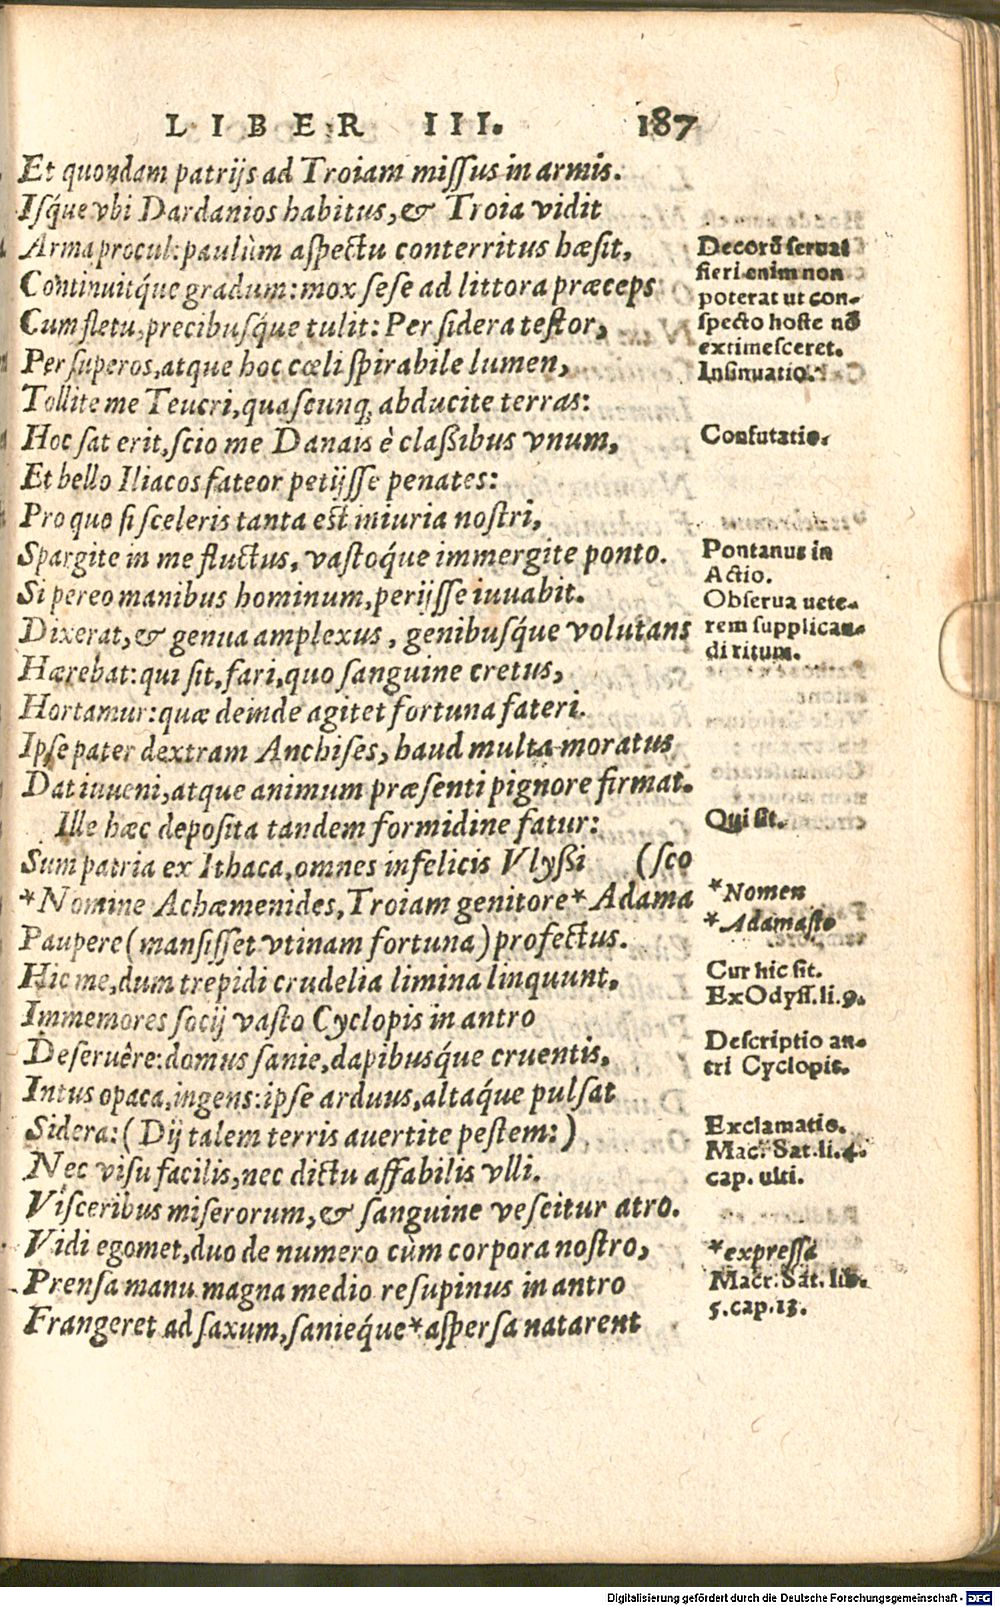 LIBER III. 187
Et quondam patrijs ad Troiam missus in armis.
Isq́ue vbi Dardanios habitus, & Troia vidit
Arma procul: paulùm aspectu conterritus hæsit,
Continuitq́ue gradum: mox sese ad littora præceps
Cum fletu, precibusq́ue tulit: Per sidera testor,
Per superos, atque hoc cœli spirabile lumen,
Tollite me Teucri, quascunq; abducite terras:
Hoc sat erit, scio me Danais è classibus vnum,
Et bello Iliacos fateor petijsse penates:
Pro quo si sceleris tanta est iniuria nostri,
Spargite in me fluctus, vastoq́ue immergite ponto.
Si pereo manibus hominum, perijsse iuuabit.
Dixerat, & genua amplexus, genibusq́ue volutans
Hærebat: qui sit, fari, quo sanguine cretus,
Hortamur: quæ deinde agitet fortuna fateri.
Ipse pater dextram Anchises, haud multa moratus
Dat iuueni, atque animum præsenti pignore firmat.
Ille hæc deposita tandem formidine fatur:
Sum patria ex Ithaca, omnes infelicis Vlyssi (sco
*Nomine Achæmenides, Troiam genitore* Adama
Paupere (mansisset vtinam fortuna) profectus.
Hic me, dum trepidi crudelia limina linquunt,
Immemores socij vasto Cyclopis in antro
Deseruêre: domus sanie, dapibusq́ue cruentis,
Intus opaca, ingens: ipse arduus, altaq́ue pulsat
Sidera: (Dij talem terris auertite pestem:)
Nec visu facilis, nec dictu affabilis vlli.
Visceribus miserorum, & sanguine vescitur atro.
Vidi egomet, duo de numero cùm corpora nostro,
Prensa manu magna medio resupinus in antro
Frangeret ad saxum, sanieq́ue* aspersa natarent
Decorū seruat
fieri enim non
poterat ut con-
specto hoste nō
extimesceret.
Insinuatio.
Confutatio.
Pontanus in
Actio.
Obserua uete-
rem supplican-
di ritum.
Qui sit.
*Nomen
*Adamasto
Cur hic sit.
Ex Odyss. li. 9.
Descriptio an-
tri Cyclopis.
Exclamatio.
Macr. Sat. li. 4.
cap. ulti.
*expressa
Macr. Sat. lib.
5. cap. 13.
Digitalisierung gefördert durch die Deutsche Forschungsgemeinschaft - DFG